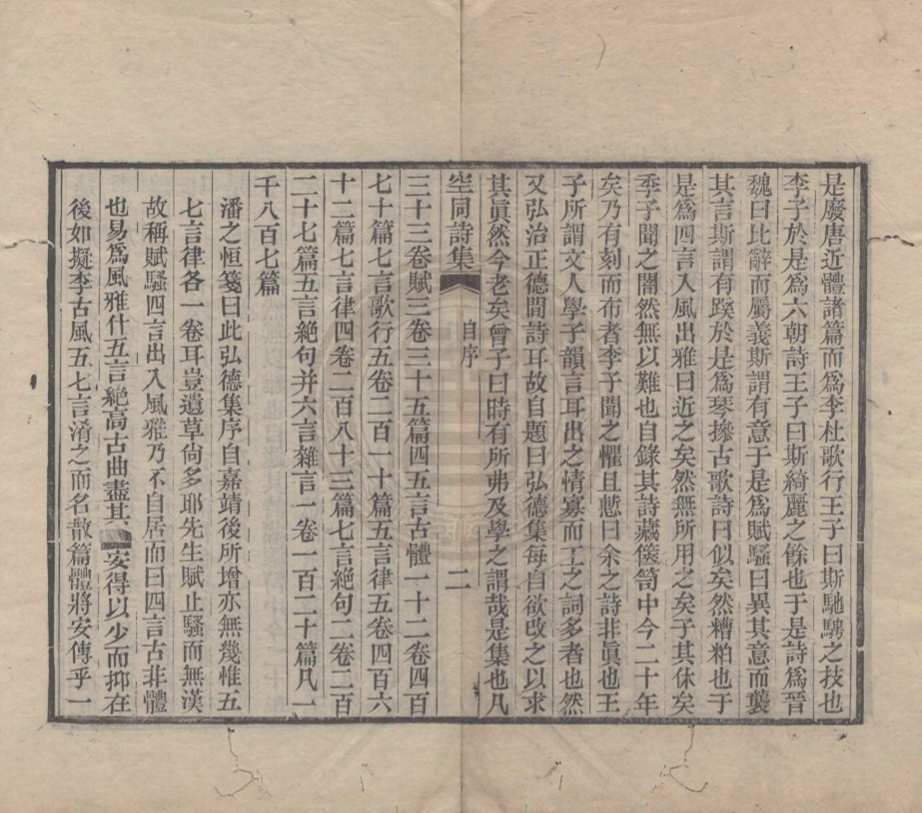 是廢唐近體諸篇而爲李杜歌行王子曰斯馳騁之技也
李子於是爲六朝詩王子曰斯綺麗之餘也于是詩爲晉
魏曰比辭而屬義斯謂有意于是爲賦騷曰異其意而襲
其言斯謂有蹊於是爲琴操古歌詩曰似矣然糟粕也于
是爲四言入風出雅曰近之矣然無所用之矣子其休矣
李子聞之闇然無以難也自錄其詩藏篋笥中今二十年
矣乃有刻而布者李子聞之懼且慙曰余之詩非眞也王
子所謂文人學子韻言耳出之情寡而工之詞多者也然
又弘治正德間詩耳故自題曰弘德集每自欲改之以求
其眞然今老矣曾子曰時有所弗及學之謂哉是集也凡
空同詩集 自序 二
三十三卷賦三卷三十五篇四五言古體一十二卷四百
七十篇七言歌行五卷二百一十篇五言律五卷四百六
十二篇七言律四卷二百八十三篇七言絕句二卷二百
二十七篇五言絕句并六言雜言一卷一百二十篇凡一
千八百七篇
潘之恒箋曰此弘德集序自嘉靖後所增亦無幾惟五
七言律各一卷耳豈遺草尙多耶先生賦止騷而無漢
故稱賦騷四言出入風雅乃不自居而曰四言古非體
也易爲風雅什五言絕高古曲盡其安得以少而抑在
後如擬李古風五七言淆之而名散篇體將安傳乎一